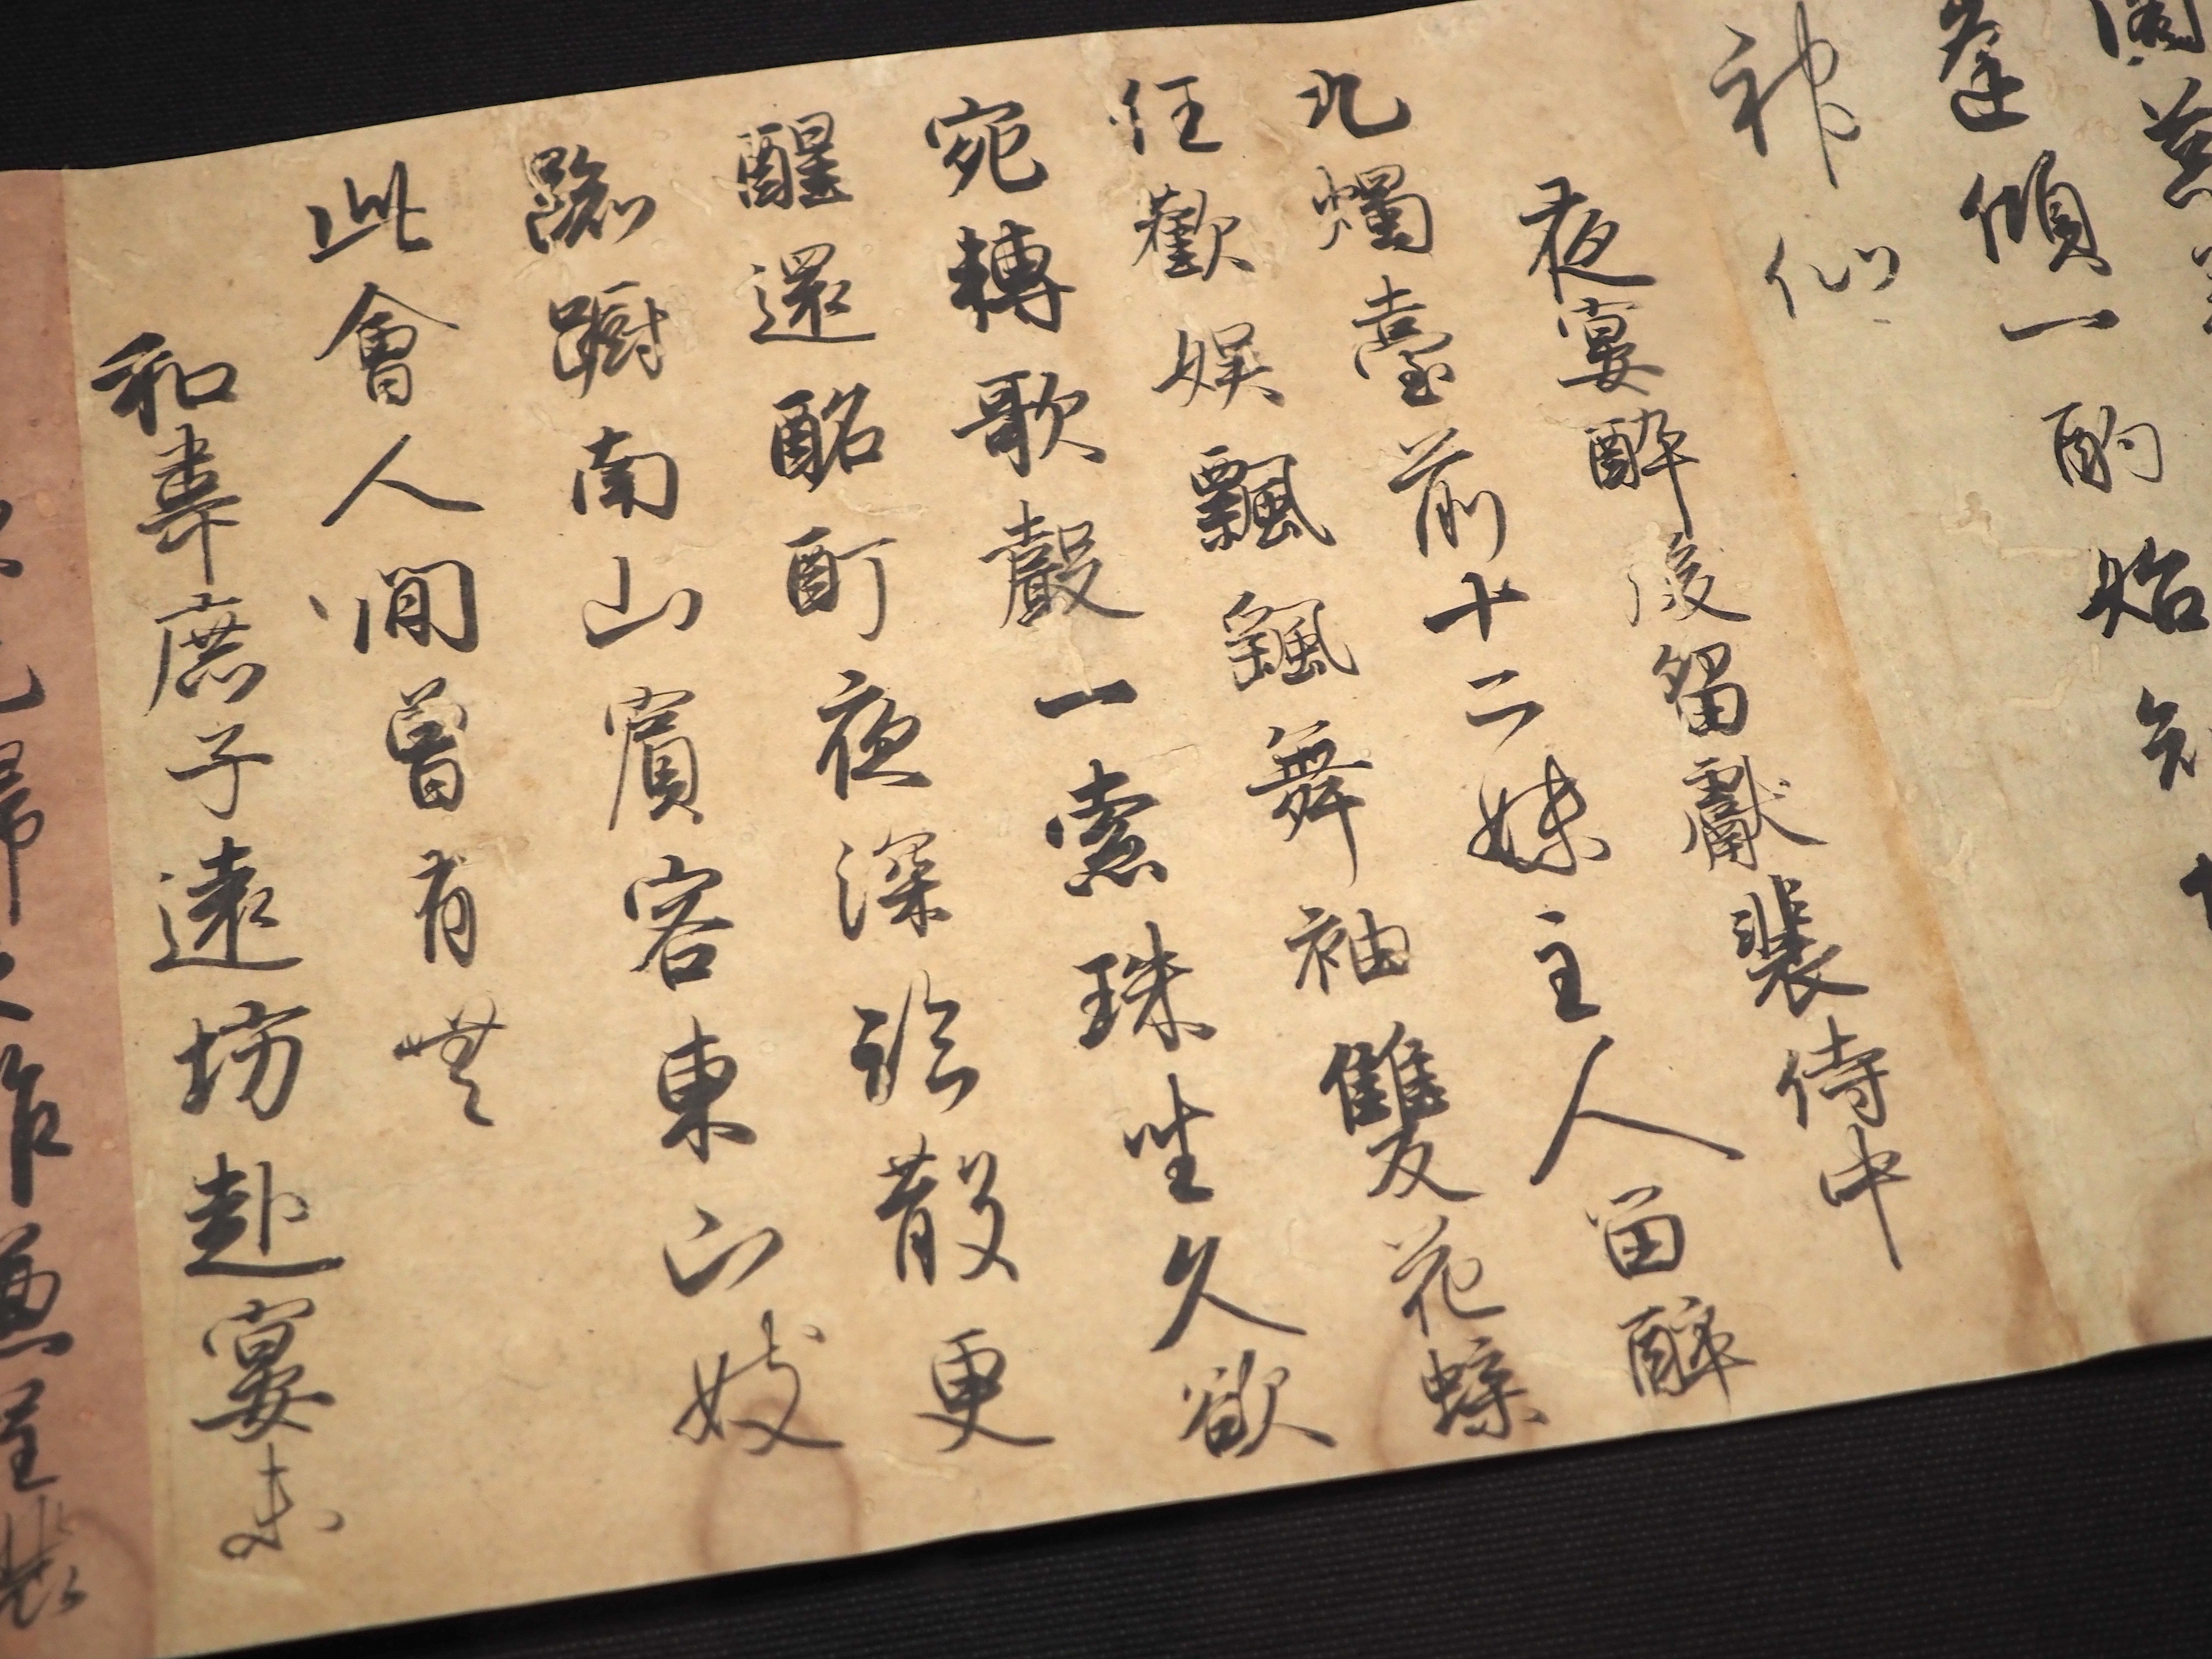 傾一酌始知
神仙
夜宴醉後留獻裴侍中
九燭臺前十二姝主人留醉
任歡娯飄颻舞袖雙花蝶
宛轉歌聲一索珠坐久欲
醒還酩酊夜深臨散更
踟躕南山賓客東山妓
此會人間曾有無
和韋庶子遠坊赴宴未
先歸之作兼呈裴